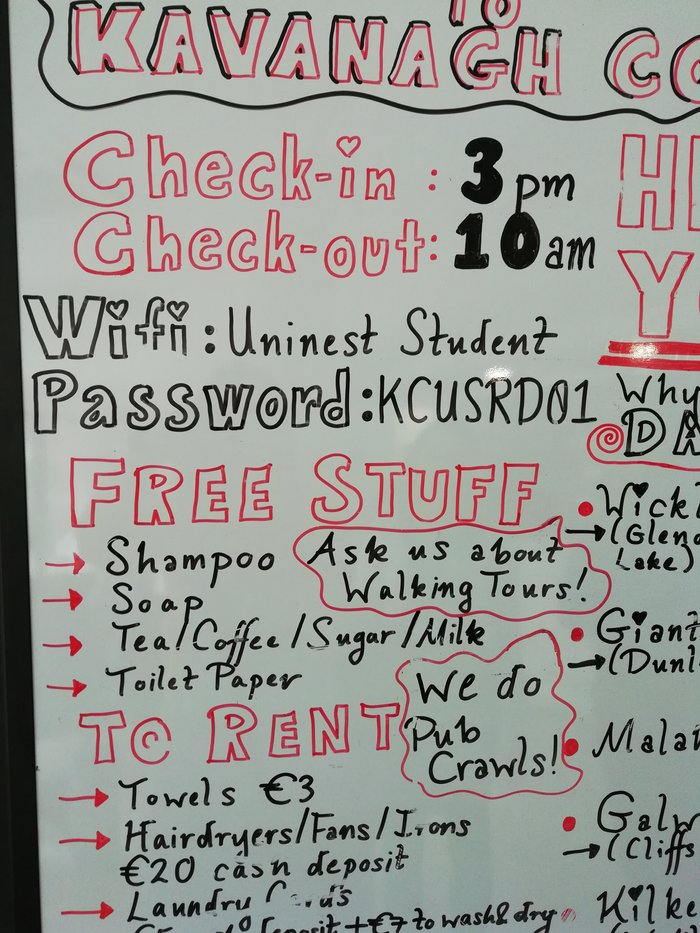 TO
KAVANAGH CO
Check-in : 3pm
Check-out: 10am
Wifi: Uninest Student
Password: KCUSRD01
FREE STUFF
→ Shampoo
→ Soap
→ Tea/Coffee/Sugar/Milk
→ Toilet Paper
Ask us about
Walking Tours!
We do
Pub
Crawls!
TO RENT
→ Towels €3
→ Hairdryers/Fans/Irons
€20 cash deposit
→ Laundry
deposit + €7 to wash & dry
HE
Y
Why
DA
• Wickl
→ (Glend
Lake)
• Giant
→ (Dunl
• Malah
• Galw
→ (Cliffs
Kilke